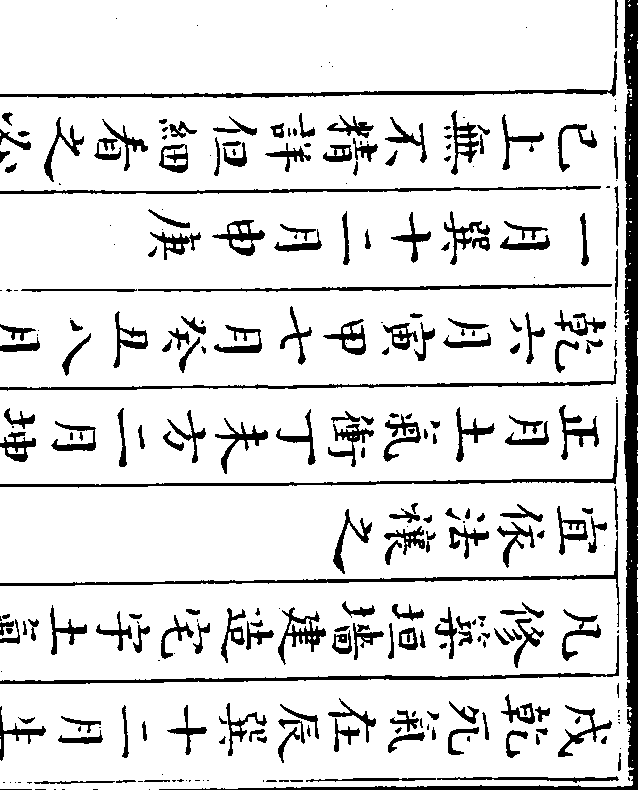 戌乾死氣在辰巽十二月
凡修築垣墻建造宅宇土氣
宜依法禳之
正月土氣衝丁未方二月坤
乾六月寅甲七月癸丑八月
一月巽十二月申庚
已上無不精詳但細看之